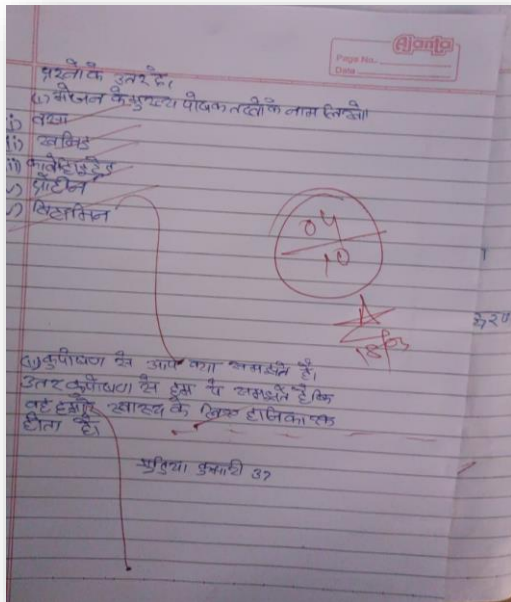 Ajanta
Page No.
Date
प्रश्नो के उतर दे।
(i) भोजन के मुख्य पोषक तत्वो के नाम लिखो।
i) वसा
(ii) खनिज
iii) कार्बोहाइड्रेट
v) प्रोटीन
v) विटामिन
04
10
A
18/03
(ii) कुपोषण से आप क्या समझते है।
उतर कुपोषण से हम ये समझते है कि
वह हमारे स्वास्थ के लिए हानिकारक
होता है।
कुमारी 37